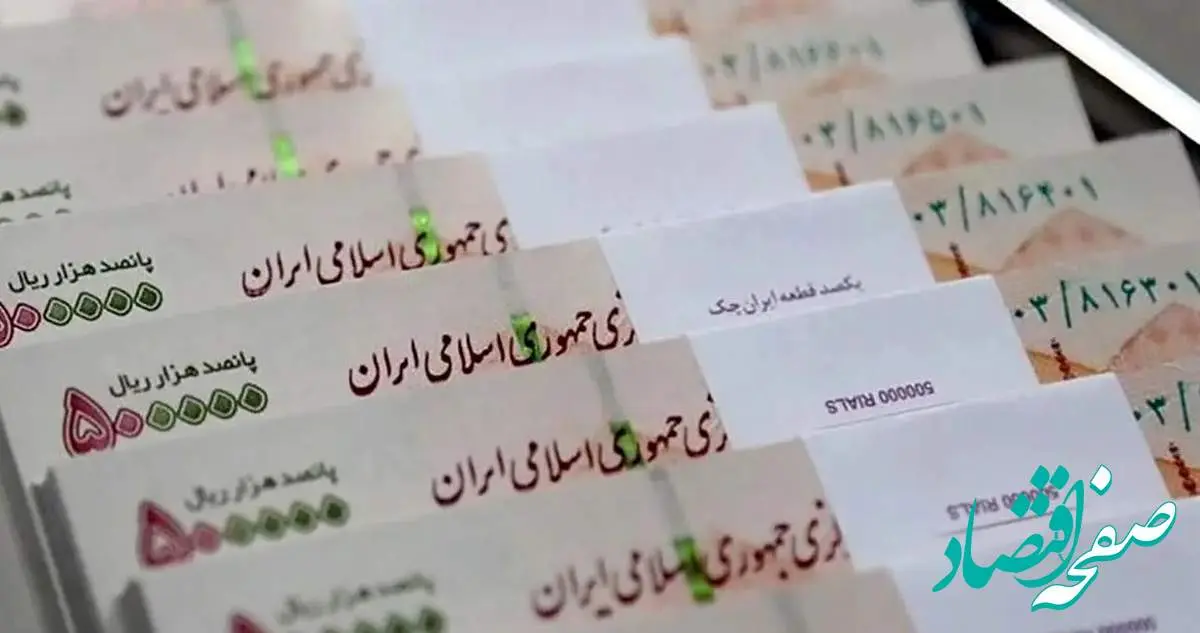 جمهوری اسلامی ایران
۰۳/۸۱۶۶۰۱
۰۳/۸۱۶۵۰۱
پانصد هزار ریال
۵۰۰۰۰۰
جمهوری اسلامی ایران
۰۳/۸۱۶۴۰۱
یکصد قطعه ایران چک
پانصد هزار ریال
۵۰۰۰۰۰
جمهوری اسلامی ایران
500000 RIALS
۰۳/۸۱۶۳۰۱
پانصد هزار ریال
۵۰۰۰۰۰
جمهوری اسلامی ایران
500000 RIALS
پانصد هزار ریال
جمهوری اسلامی ایران
صفحه اقتصاد